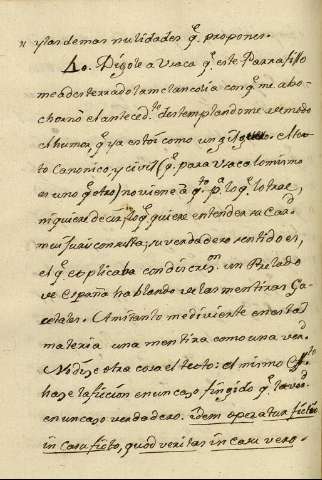 y las demas nulidades q.e propones.
10. Digote a Vraca q.e este Parrafillo
me ha desterrado la melancolia con q.e me abo-
chornò el anteced.te destemplandome de modo
el humor, q.e ya estoi como un gilguero. El tex-
to Canonico, y civil (q.e para Vraca lo mismo
es uno q.e otro) no viene à q.to p.a lo q.e lo trae,
ni quiere decir lo q.e quiere entender su Card.
mui Juris consulta; su verdadero sentido es,
el q.e explicaba con discrez.on un Prelado
de España hablando de las mentiras Ga-
cetales. A mi tanto me divierte en esta
materia una mentira como una verd.
No dice otra cosa el texto: el mismo effto
haze la ficcion en un caso fingido q.e la verd.
en un caso verdadero. idem operatur fictio
in casu ficto, quod veritas in casu vero.